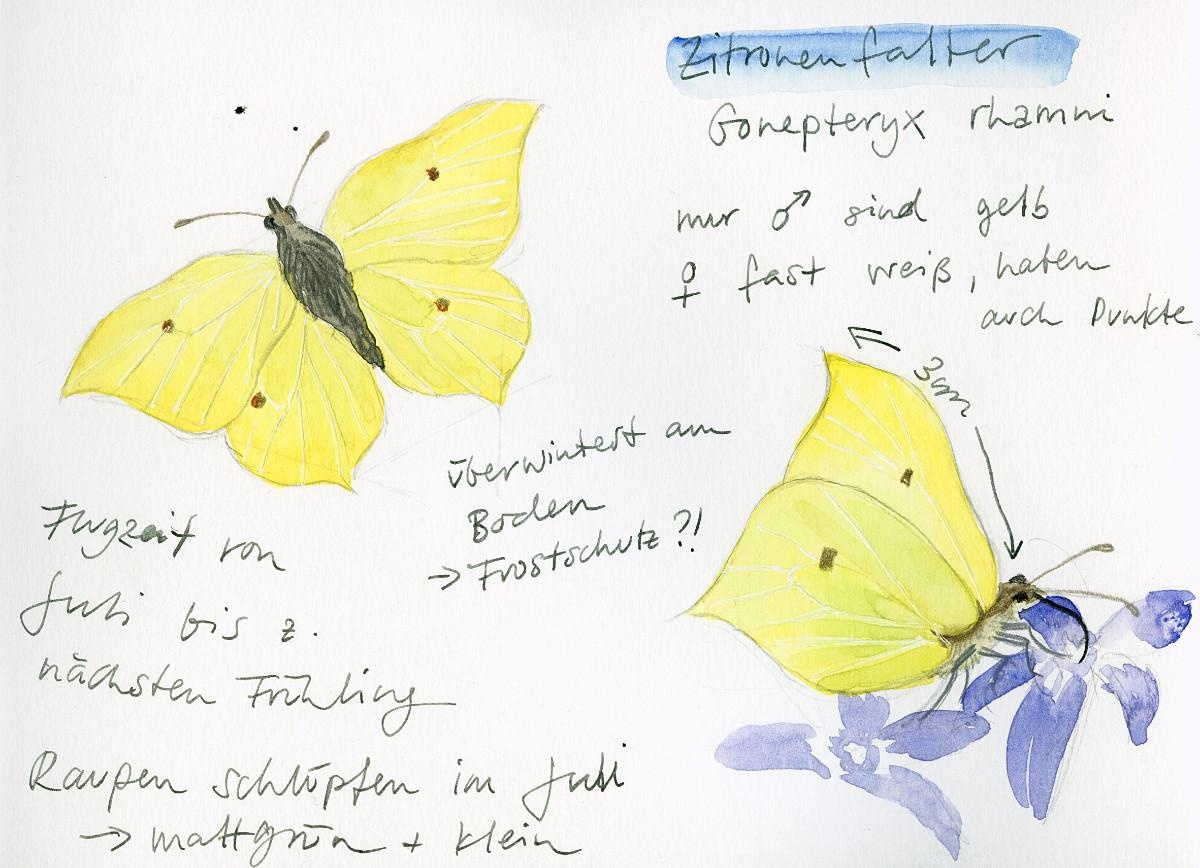 Zitronenfalter
Gonepteryx rhamni
nur ♂ sind gelb
♀ fast weiß, haben
auch Punkte
3cm
überwintert am
Boden
→ Frostschutz?!
Flugzeit von
Juli bis z.
nächsten Frühling
Raupen schlüpfen im Juli
→ mattgrün + klein